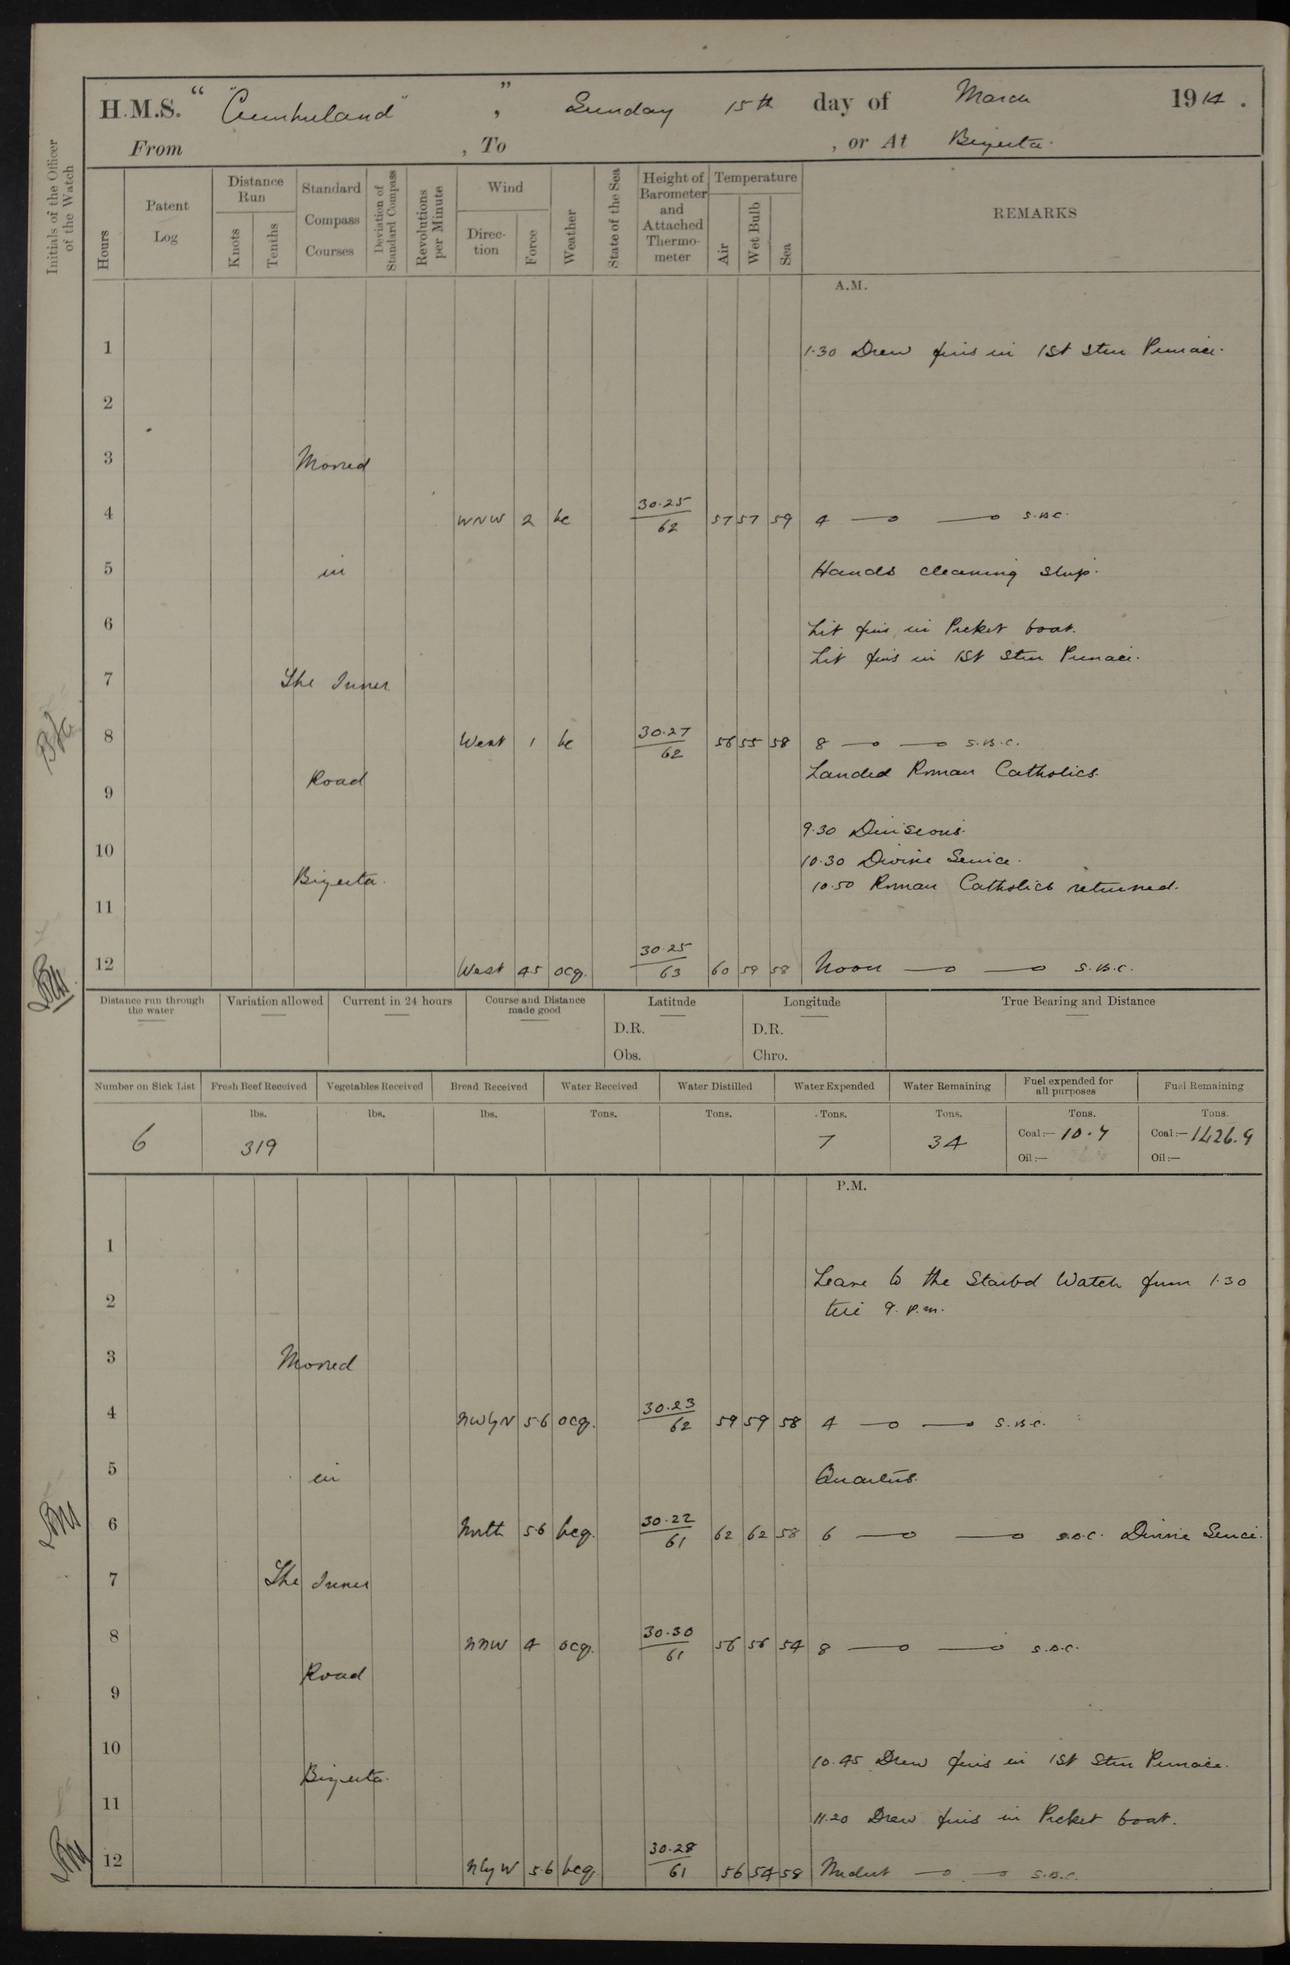 H.M.S. " "Cumberland" " , Sunday 15th day of March 1914 .
From , To , or At Bizerta.
Initials of the Officer of the Watch
Hours
Patent Log
Distance Run
Knots
Tenths
Standard Compass Courses
Deviation of Standard Compass
Revolutions per Minute
Wind
Direction
Force
Weather
State of the Sea
Height of Barometer and Attached Thermometer
Temperature
Air
Wet Bulb
Sea
REMARKS
A.M.
1 1.30 Drew fires in 1st Stm Pinnace.
2
3 Moored
4 WNW 2 bc 30.25/62 57 57 59 4 —o —o S.B.C.
5 in Hands cleaning ship.
6 Lit fires in Picket boat.
Lit fires in 1st Stm Pinnace.
7 The Inner
8 West 1 bc 30.27/62 56 55 58 8 —o —o S.B.C.
Landed Roman Catholics.
9 Road
9.30 Divisions.
10 10.30 Divine Service.
Bizerta. 10.50 Roman Catholics returned.
11
12 West 45 ocq. 30.25/63 60 59 58 Noon —o —o S.B.C.
Distance run through the water
Variation allowed
Current in 24 hours
Course and Distance made good
Latitude
D.R.
Obs.
Longitude
D.R.
Chro.
True Bearing and Distance
Number on Sick List Fresh Beef Received Vegetables Received Bread Received Water Received Water Distilled Water Expended Water Remaining Fuel expended for all purposes Fuel Remaining
lbs. lbs. lbs. Tons. Tons. Tons. Tons. Tons. Tons.
6 319 7 34 Coal:— 10.7 Coal:— 1426.9
Oil:— Oil:—
P.M.
1
Leave to the Starbd Watch from 1.30
2 till 9. p.m.
3 Moored
4 NWbyN 5.6 ocq. 30.23/62 59 59 58 4 —o —o S.B.C.
5 in Quarters.
6 North 5.6 bcq. 30.22/61 62 62 58 6 —o —o S.B.C. Divine Service.
7 The Inner
8 NNW 4 ocq. 30.30/61 56 56 54 8 —o —o S.B.C.
Road
9
10 10.45 Drew fires in 1st Stm Pinnace.
Bizerta.
11 11.20 Drew fires in Picket boat.
12 NbyW 5.6 bcq. 30.28/61 56 54 58 Midnt —o —o S.B.C.